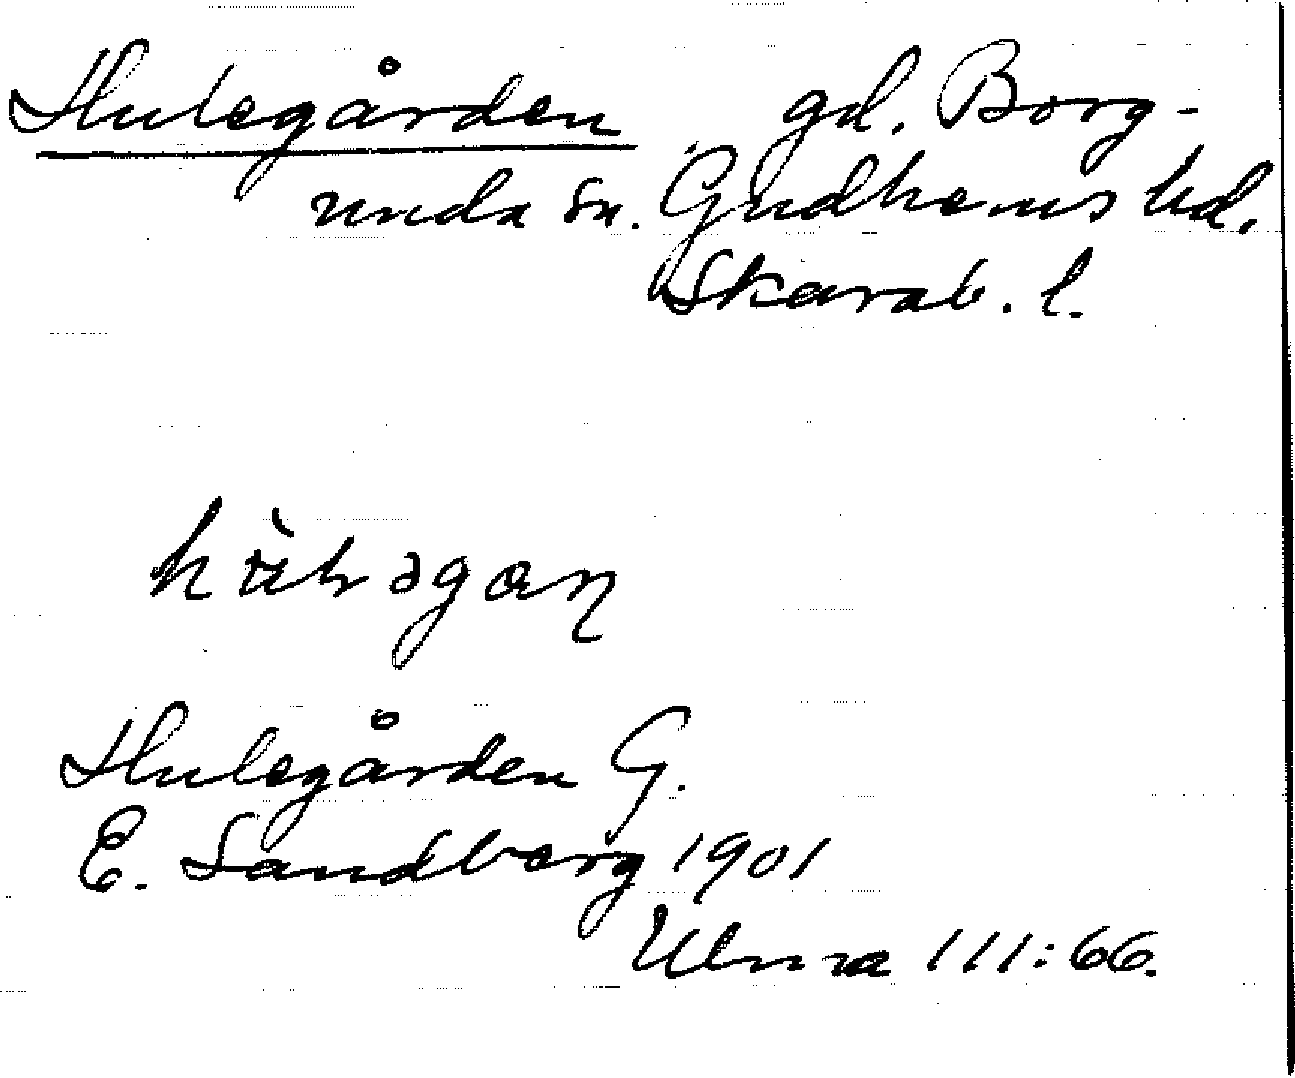 Hulegården gd. Borg-
unda sn. Gudhems hd.
Skarab. l.
Hulegården G.
E. Sandberg 1901
Ulma 111:66.